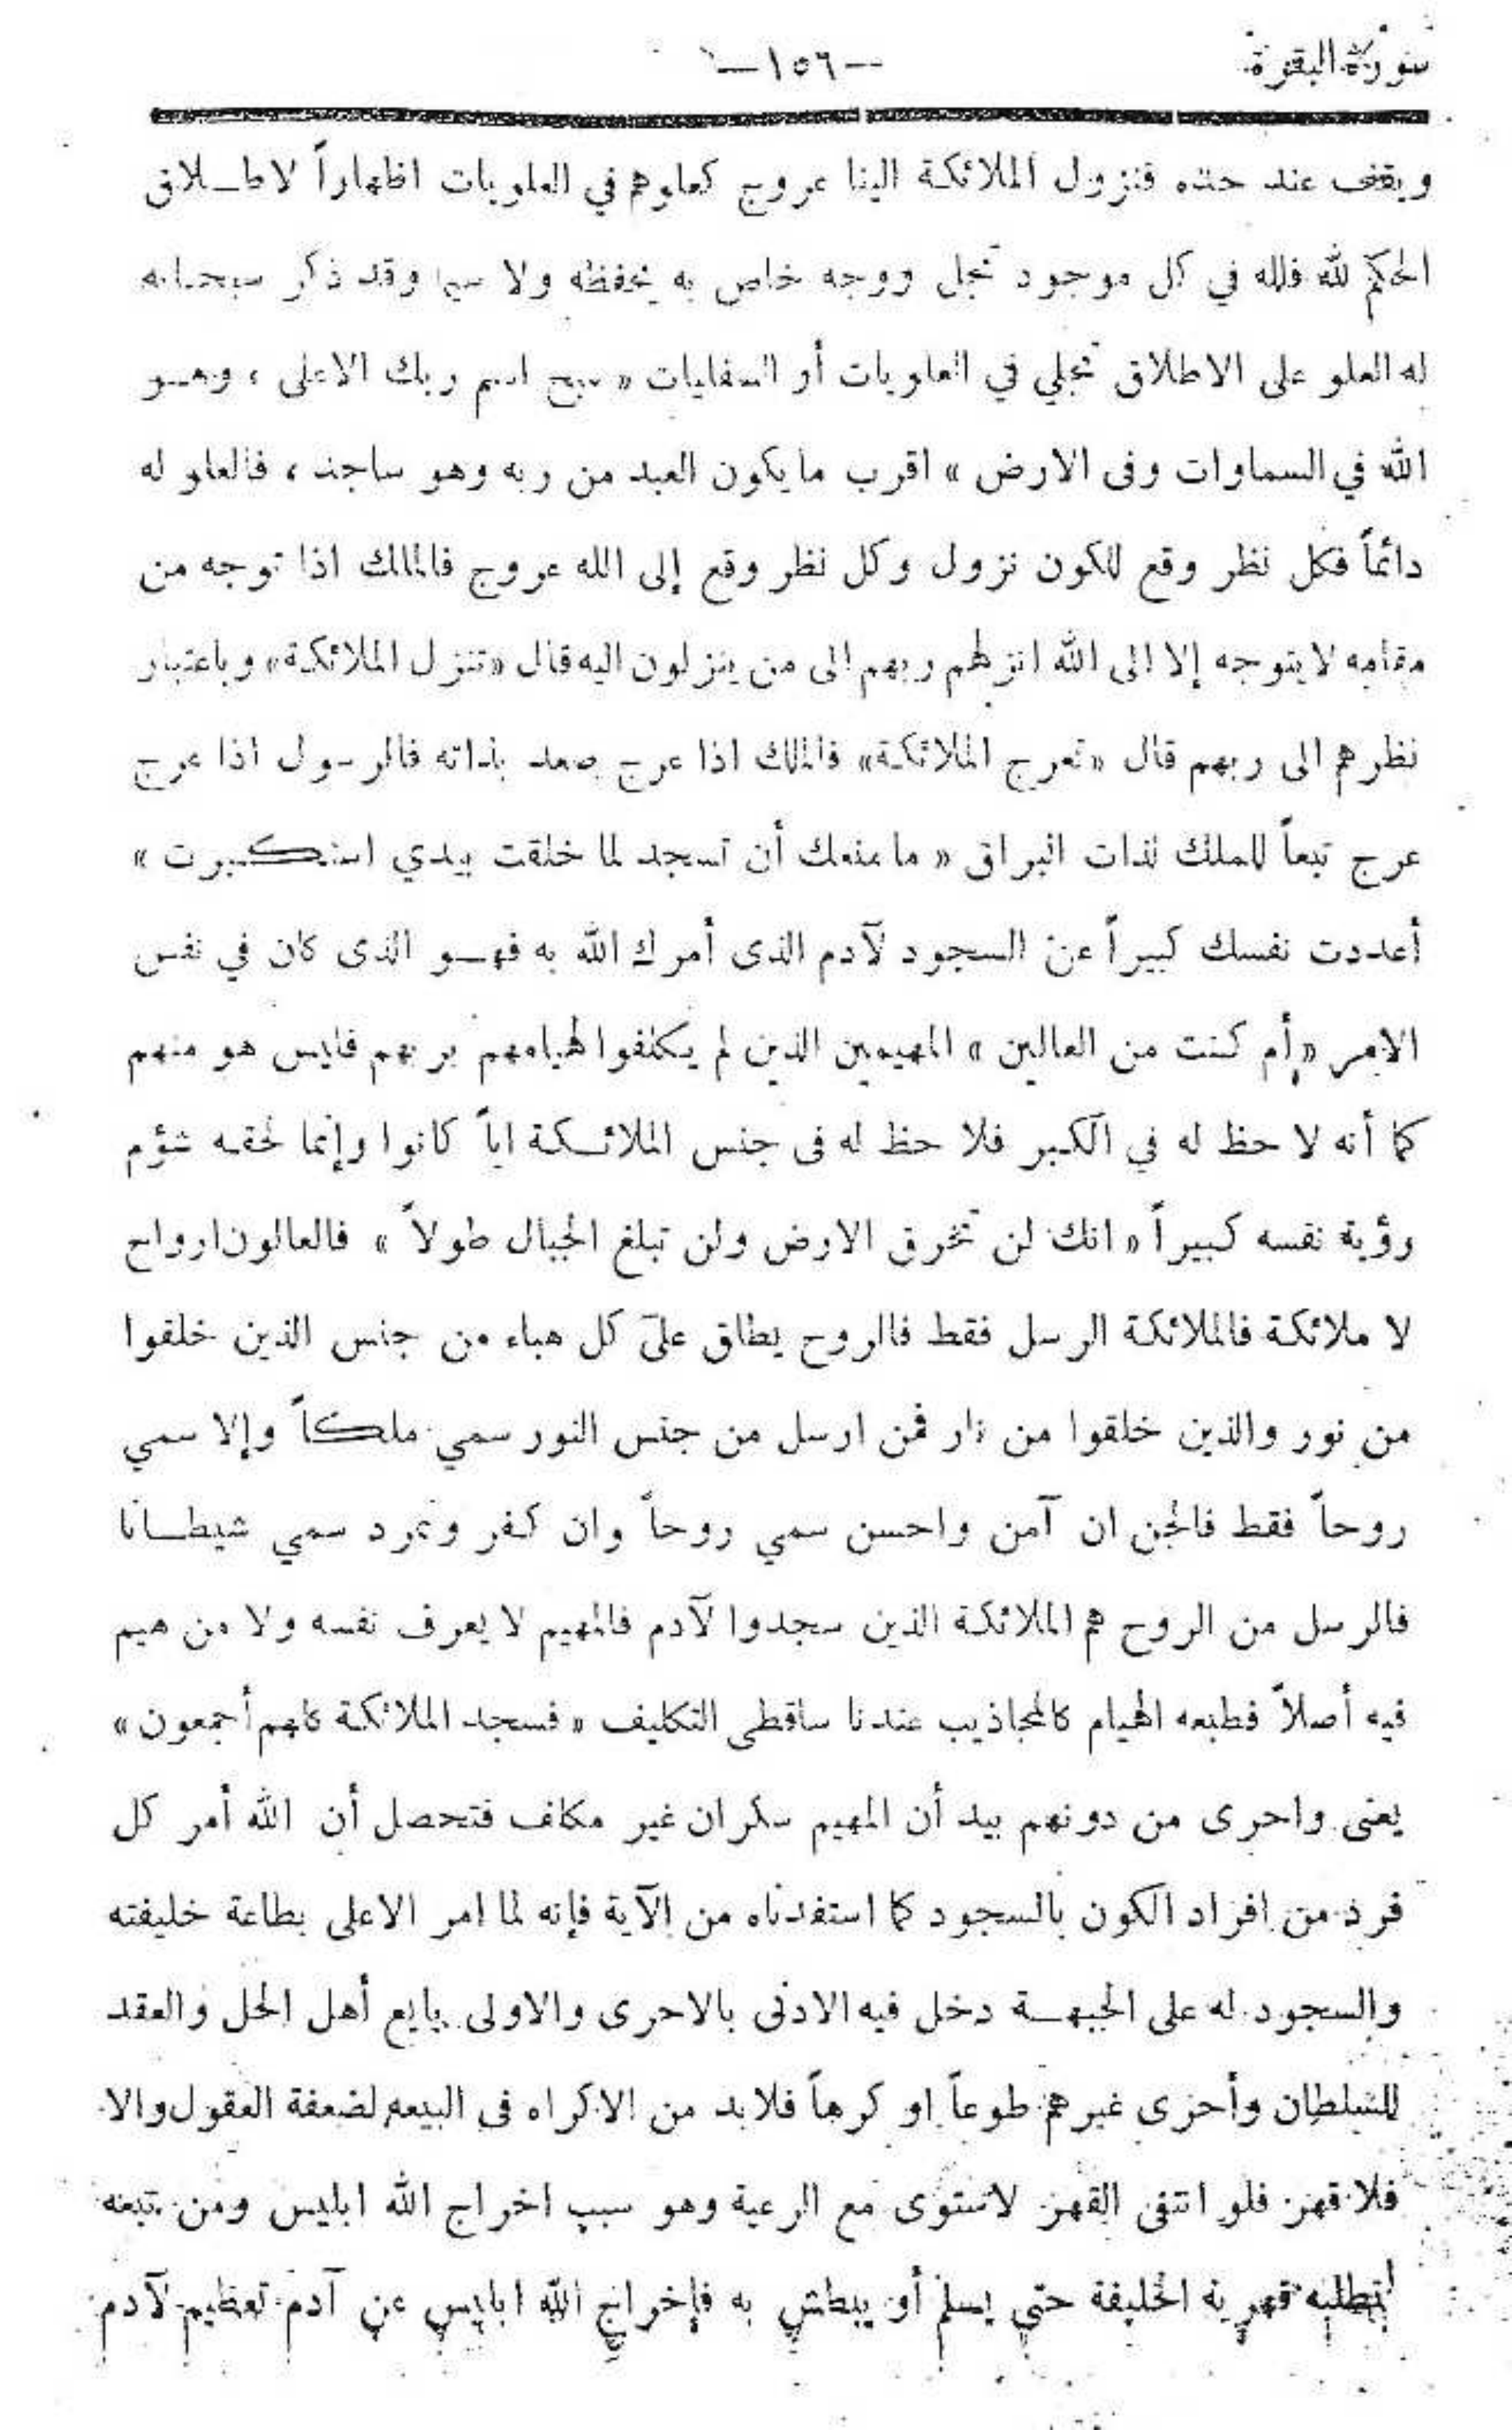 سورة البقرة
—١٥٦—
ويقف عند حده فنزول الملائكة الينا عروج كعلوهم في العلويات اظهاراً لاطـلاق
الحكم لله فلله في كل موجود تجل ووجه خاص به يحفظه ولا سيما وقد ذكر سبحانه
له العلو على الاطلاق تجلي في العلويات أو السفليات « سبح اسم ربك الاعلى ، وهـو
الله في السماوات وفى الارض » اقرب ما يكون العبد من ربه وهو ساجد ، فالعلو له
دائماً فكل نظر وقع للكون نزول وكل نظر وقع إلى الله عروج فالملك اذا توجه من
مقامه لا يتوجه إلا الى الله انزلهم ربهم الى من ينزلون اليه قال «تنزل الملائكة» وباعتبار
نظرهم الى ربهم قال «تعرج الملائكة» فالملك اذا عرج صعد بذاته فالرسول اذا عرج
عرج تبعاً للملك لذات البراق « ما منعك أن تسجد لما خلقت بيدي استكـبرت »
أعددت نفسك كبيراً عن السجود لآدم الذى أمرك الله به فهـو الذى كان في نفس
الامر « أم كنت من العالين » المهيمين الذين لم يكلفوا لهيامهم بربهم فليس هو منهم
كما أنه لا حظ له في الكبر فلا حظ له فى جنس الملائـكة اياً كانوا وإنما لحقه شؤم
رؤية نفسه كبيراً « انك لن تخرق الارض ولن تبلغ الجبال طولاً » فالعالون ارواح
لا ملائكة فالملائكة الرسل فقط فالروح يطلق على كل هباء من جنس الذين خلقوا
من نور والذين خلقوا من نار فمن ارسل من جنس النور سمي ملكاً وإلا سمي
روحاً فقط فالجن ان آمن واحسن سمي روحاً وان كفر وتمرد سمي شيطـانا
فالرسل من الروح هم الملائكة الذين سجدوا لآدم فالمهيم لا يعرف نفسه ولا من هيم
فيه أصلاً فطبعه الهيام كالمجاذيب عندنا ساقطى التكليف « فسجد الملائكة كلهم أجمعون »
يعنى واحرى من دونهم بيد أن المهيم سكران غير مكلف فتحصل أن الله أمر كل
فرد من افراد الكون بالسجود كما استفدناه من الآية فإنه لما امر الاعلى بطاعة خليفته
والسجود له على الجبهـة دخل فيه الادنى بالاحرى والاولى يبايع أهل الحل والعقد
للسلطان وأحرى غيرهم طوعاً او كرهاً فلابد من الاكراه فى البيعه لضعفة العقول والا
فلا قهر فلو انتفى القهر لاستوى مع الرعية وهو سبب اخراج الله ابليس ومن تبعه
لتطلبه قهرية الخليفة حتى يسلم أو يبطش به فإخراج الله ابليس عن آدم تعظيم لآدم